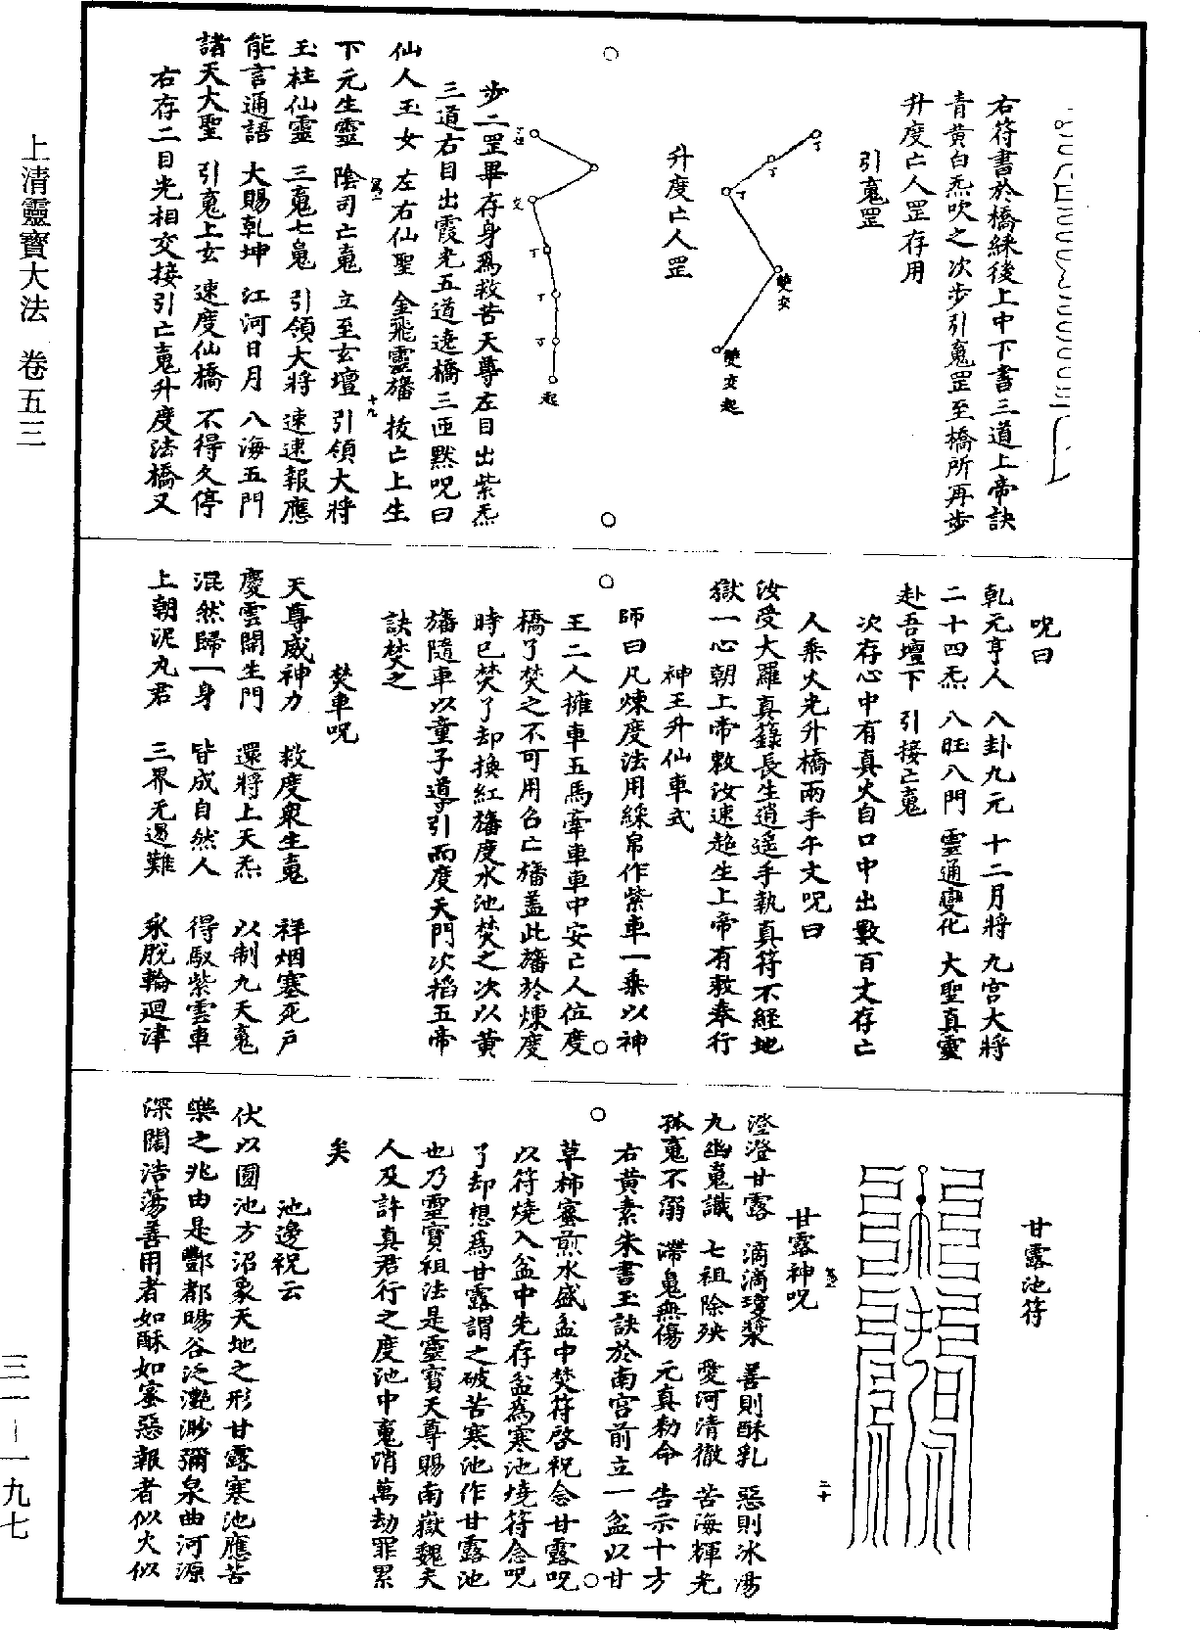 上清靈寶大法 卷五三
三一-一九七
右符書於橋綵後上中下書三道上帝訣
青黃白炁吹之次步引䰟罡至橋所再步
升度亡人罡存用
引䰟罡
丁
丁
丁
雙交
雙交起
升度亡人罡
交
丁
丁
丁
起
步二罡畢存身爲救苦天尊左目出紫炁
三道右目出霞光五道遶橋三匝黙呪曰
仙人玉女 左右仙聖 金飛靈旛 拔亡上生
下元生靈 陰司亡䰟 立至玄壇 引領大將
玉柱仙靈 三䰟七魄 引領大將 速速報應
能言通語 大賜乾坤 江河日月 八海五門
諸天大聖 引䰟上玄 速度仙橋 不得久停
右存二目光相交接引亡䰟升度法橋又
十九
呪曰
乹元亨人 八卦九元 十二月將 九宮大將
二十四炁 八旺八門 靈通變化 大聖真靈
赴吾壇下 引接亡䰟
次存心中有真火自口中出數百丈存亡
人乘火光升橋兩手午文呪曰
汝受大羅真籙長生逍遥手執真符不經地
獄一心朝上帝敕汝速超生上帝有敕奉行
神王升仙車式
師曰凡煉度法用綵帛作紫車一乘以神
王二人擁車五馬牽車車中安亡人位度
橋了焚之不可用召亡旛蓋此旛於煉度
時已焚了却換紅旛度水池焚之次以黃
旛隨車以童子導引而度天門次掐五帝
訣焚之
焚車呪
天尊威神力 救度衆生䰟 祥烟塞死戸
慶雲開生門 還將上天炁 以制九天䰟
混然歸一身 皆成自然人 得馭紫雲車
上朝泥丸君 三界无遏難 永脫輪迴津
甘露池符
二十
甘露神呪
澄澄甘露 滴滴瓊漿 善則酥乳 惡則冰湯
九幽䰟識 七祖除殃 愛河清徹 苦海輝光
孤䰟不溺 滯鬼無傷 元真勑命 告示十方
右黃素朱書玉訣於南宮前立一盆以甘
草柿蜜煎水盛盆中焚符啓祝念甘露呪
以符燒入盆中先存盆爲寒池燒符念呪
了却想爲甘露謂之破苦寒池作甘露池
也乃靈寶祖法是靈寶天尊賜南嶽魏夫
人及許真君行之度池中䰟消萬劫罪累
矣
池邊祝云
伏以圓池方沼象天地之形甘露寒池應苦
樂之兆由是酆都暘谷泛灔渺彌泉曲河源
深闊浩蕩善用者如酥如蜜惡報者似火似